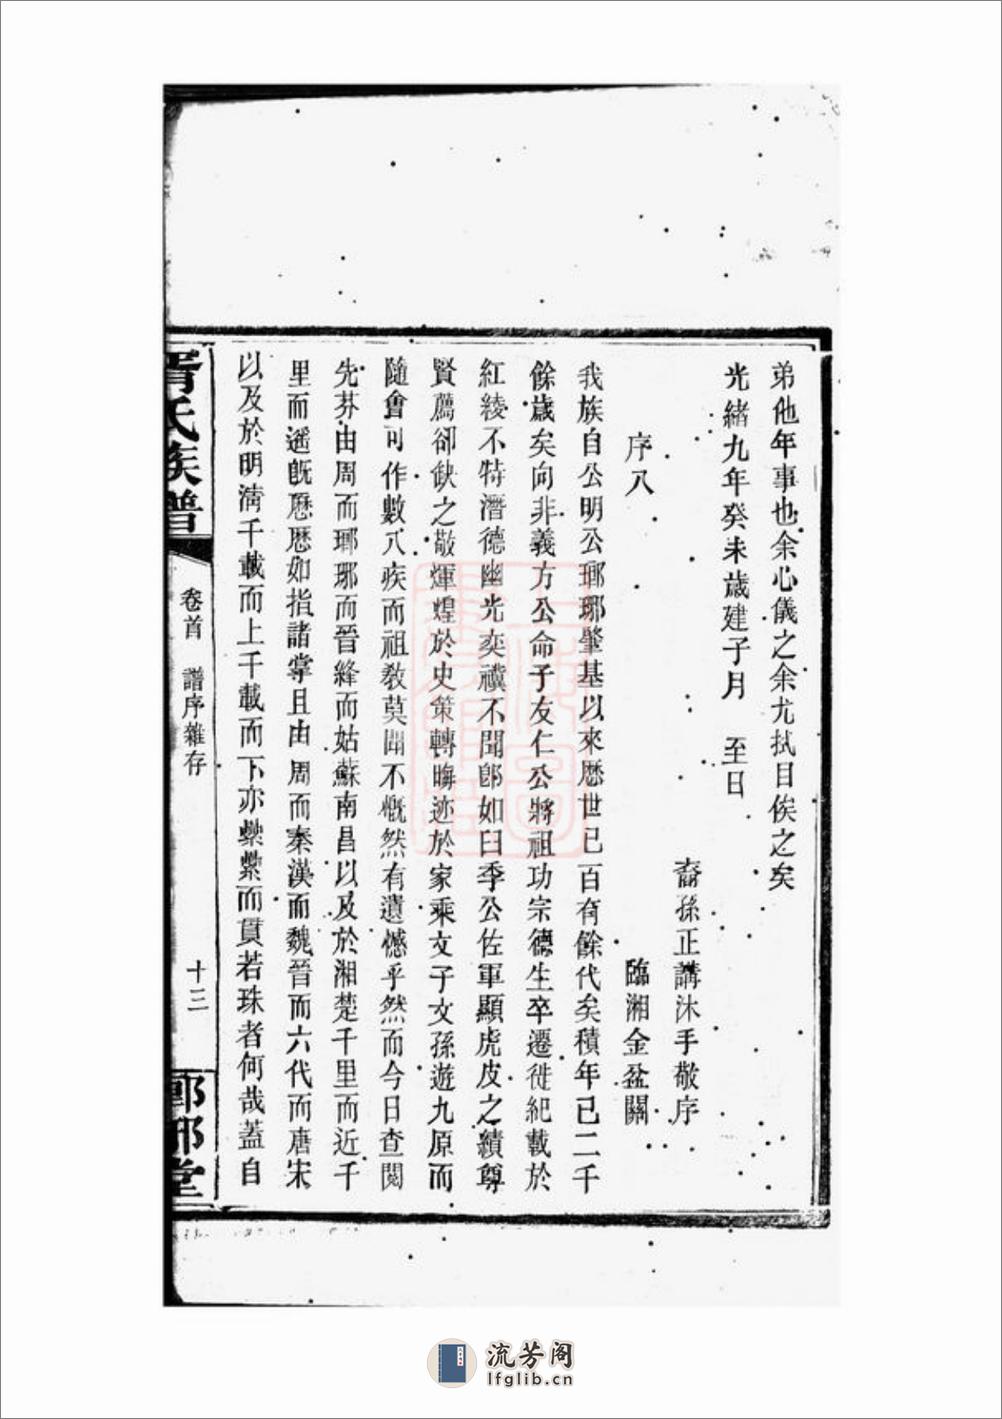 弟他年事也余心儀之余尤拭目俟之矣
光緒九年癸未歲建子月 至日
裔孫正講沐手敬序
序八 臨湘金盆關
我族自公明公瑯琊肇基以來歷世已百有餘代矣積年已二千
餘歲矣向非義方公命子友仁公將祖功宗德生卒遷徙紀載於
紅綾不特潛德幽光奕禩不聞卽如臼季公佐軍顯虎皮之績尊
賢薦卻缺之敬煇煌於史策轉晦迹於家乘文子文孫遊九原而
隨會可作數八疾而祖敎莫聞不慨然有遺憾乎然而今日查閱
先芬由周而瑯琊而晉絳而姑蘇南昌以及於湘楚千里而近千
里而遙旣歷歷如指諸掌且由周而秦漢而魏晉而六代而唐宋
以及於明淸千載而上千載而下亦纍纍而貫若珠者何哉蓋自
胥氏族譜
卷首 譜序雜存
十三
郎琊堂
流芳阁
lfglib.cn